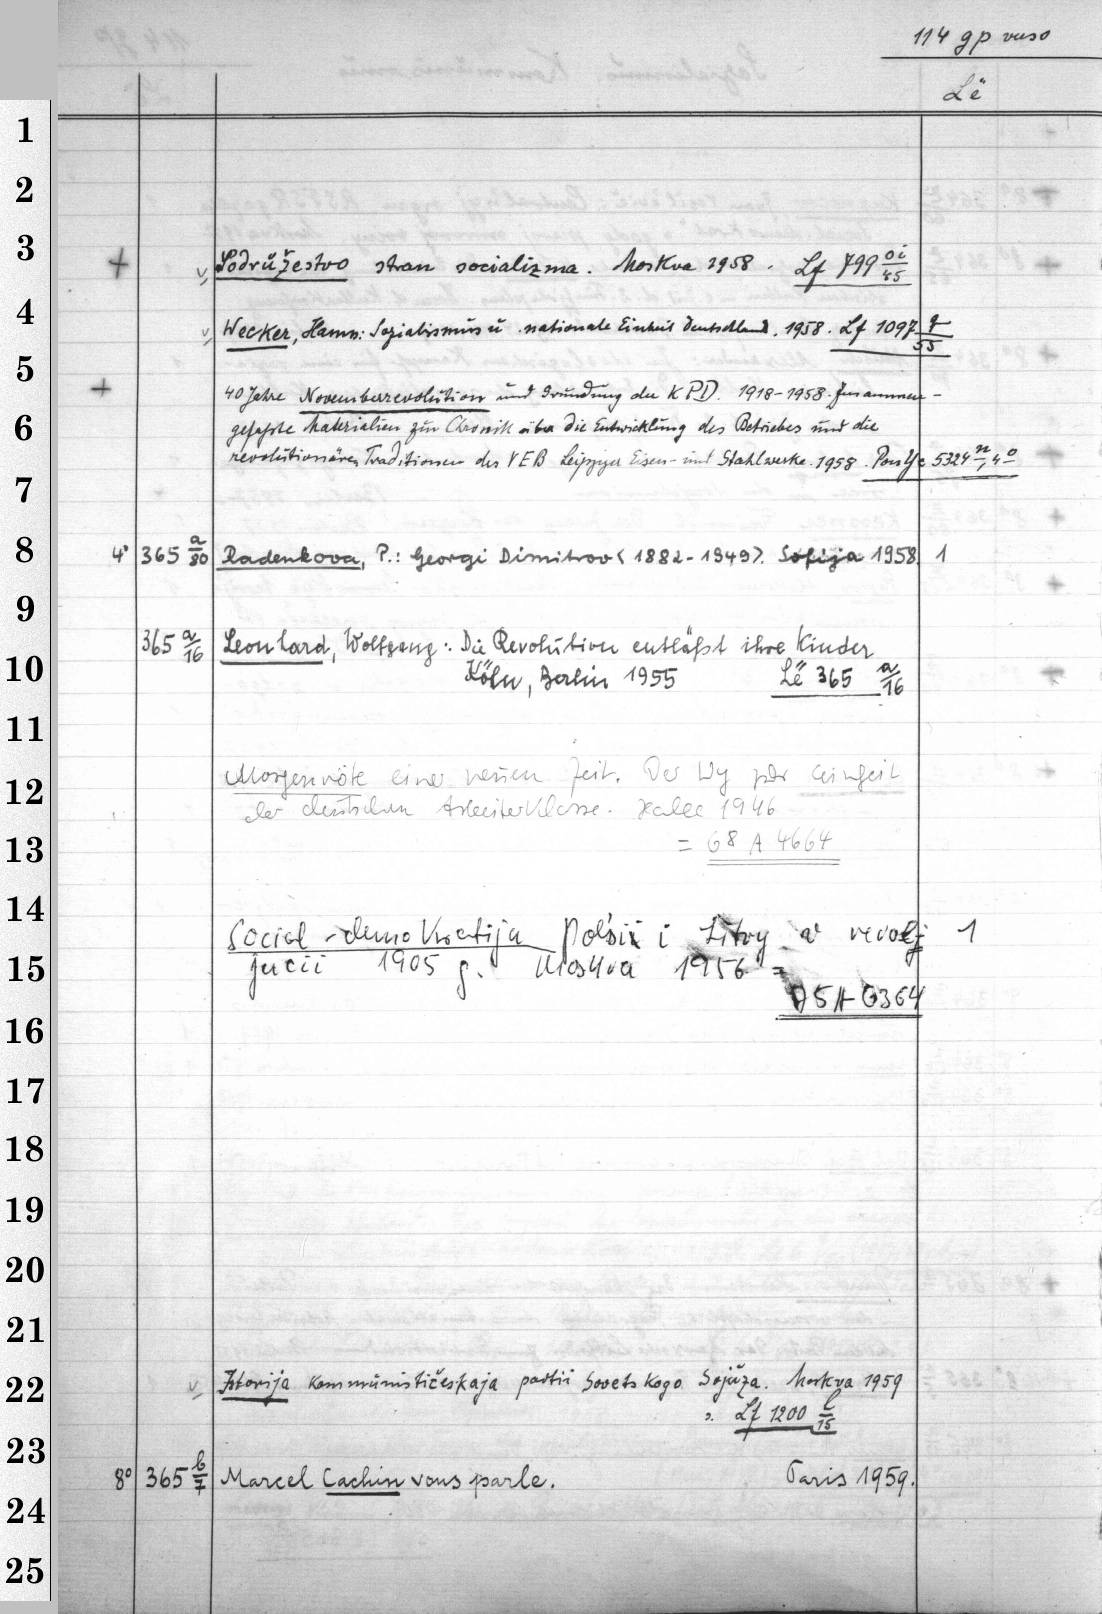 114 gp vuso
Lë
1
2
3
+ v, Sodružestvo stran socializma. Moskva 1958. Lf 799 oi/85
4
v, Wecker, Hanns: Sozialismus u. nationale Einheit Deutschland. 1958. Lf 1097 q/55
5
+ 40 Jahre Novemberrevolution und Gründung der KPD. 1918-1958. Zusammen-
6
gefaßte Materialien zur Chronik über die Entwicklung des Betriebes und die
revolutionären Traditionen des VEB Leipziger Eisen- und Stahlwerke. 1958. Pon Yc 5324 n, 4°
7
8
4° 365 a/80 Radenkova, P.: Georgi Dimitrov <1882-1949>. Sofija 1958. 1
9
365 a/16 Leonhard, Wolfgang: Die Revolution entläßt ihre Kinder
10
Köln, Berlin 1955 Lë 365 a/16
11
12
Morgenröte einer neuen Zeit. Der Weg zur Einheit
der deutschen Arbeiterklasse. Halle 1946
13
= G8 A 4664
14
Social-demokratija Pol'ši i Litvy v revolj 1
15
jucii 1905 g. Moskva 1956 =
A5A 6364
16
17
18
19
20
21
22
v, Istorija Kommunističeskaja partii Sovetskogo Sojuza. Moskva 1959
Lf 1200 l/15
23
8° 365 b/7 Marcel Cachin vous parle. Paris 1959.
24
25